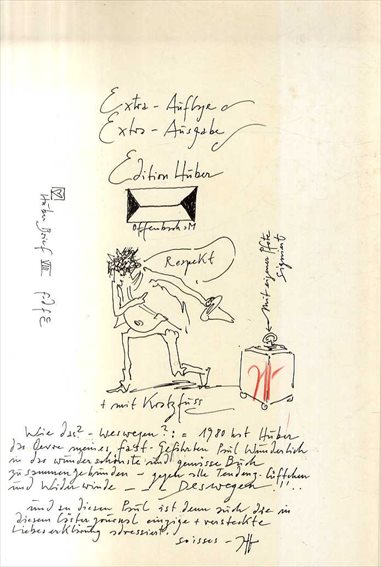 Extra - Auflage
Extra - Ausgabe
Edition Huber
Offenbach aM
Huber Brief VIII
Respekt
mit eigener Pfote
signiert
+ mit Kratzfuss
Wie das? - weswegen?: = 1980 hat Huber
das Oevre meines fast-Gefährten Paul Wunderlich
in das wunderschönste und gewisse Buch
zusammengebunden - gegen alle Tendenz-Lüftchen
und Widerwinde - Deswegen!!!..
und zu diesen Paul ist denn auch die in
diesem Lästerjournal einzige + versteckte
Liebeserklärung adressiert.
soisses -